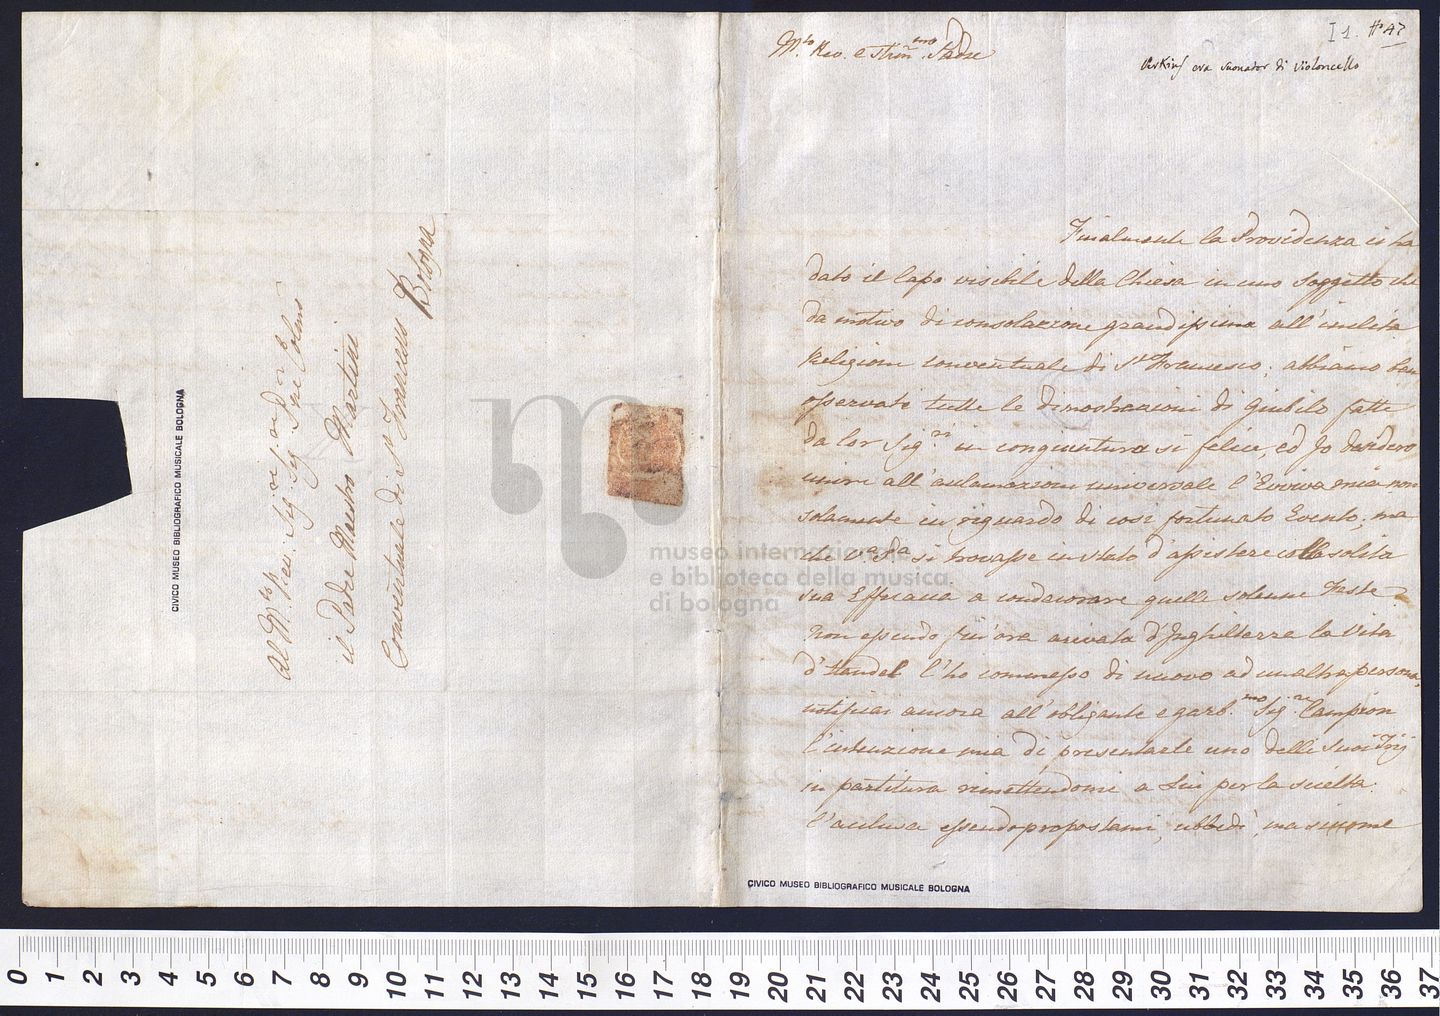 I 1. H. 47
Perkins era suonator di violoncello
M.to Rev. e Stim.mo Padre
Finalmente la Providenza ci ha
dato il Capo visibile della Chiesa in uno Soggetto che
da motivo di consolazione grandissima all'inclita
Religione conventuale di S. Francesco; abbiamo ben
osservato tutte le dimostrazioni di giubilo fatte
da lor Sig.ri in congiuntura si felice, ed Jo desidero
unire all'aclamazioni universale l'Evviva mia non
solamente in riguardo di cosi fortunato Evento, ma
che V.a P.a si trovasse in stato d'assistere colla solita
sua Efficacia a condecorare quelle solenne Feste.
Non essendo fin'ora arivata d'Inghilterra la Vita
d'Handel l'ho commesso di nuovo ad un altra persona,
notificai ancora all'obligante e garb.mo Sig.re Campion
l'intenzione mia di presentarle uno delli suoi Trij
in partitura rimettendomi a Lui per la scielta.
L'aclusa essendo propostami, ubbidì, ma siccome
Al M.to Rev. Sig.re
il Padre Maestro Martini
Conventuale di S. Francesco
Bologna
CIVICO MUSEO BIBLIOGRAFICO MUSICALE BOLOGNA
CIVICO MUSEO BIBLIOGRAFICO MUSICALE BOLOGNA
museo internazionale
e biblioteca della musica
di bologna
0 1 2 3 4 5 6 7 8 9 10 11 12 13 14 15 16 17 18 19 20 21 22 23 24 25 26 27 28 29 30 31 32 33 34 35 36 37